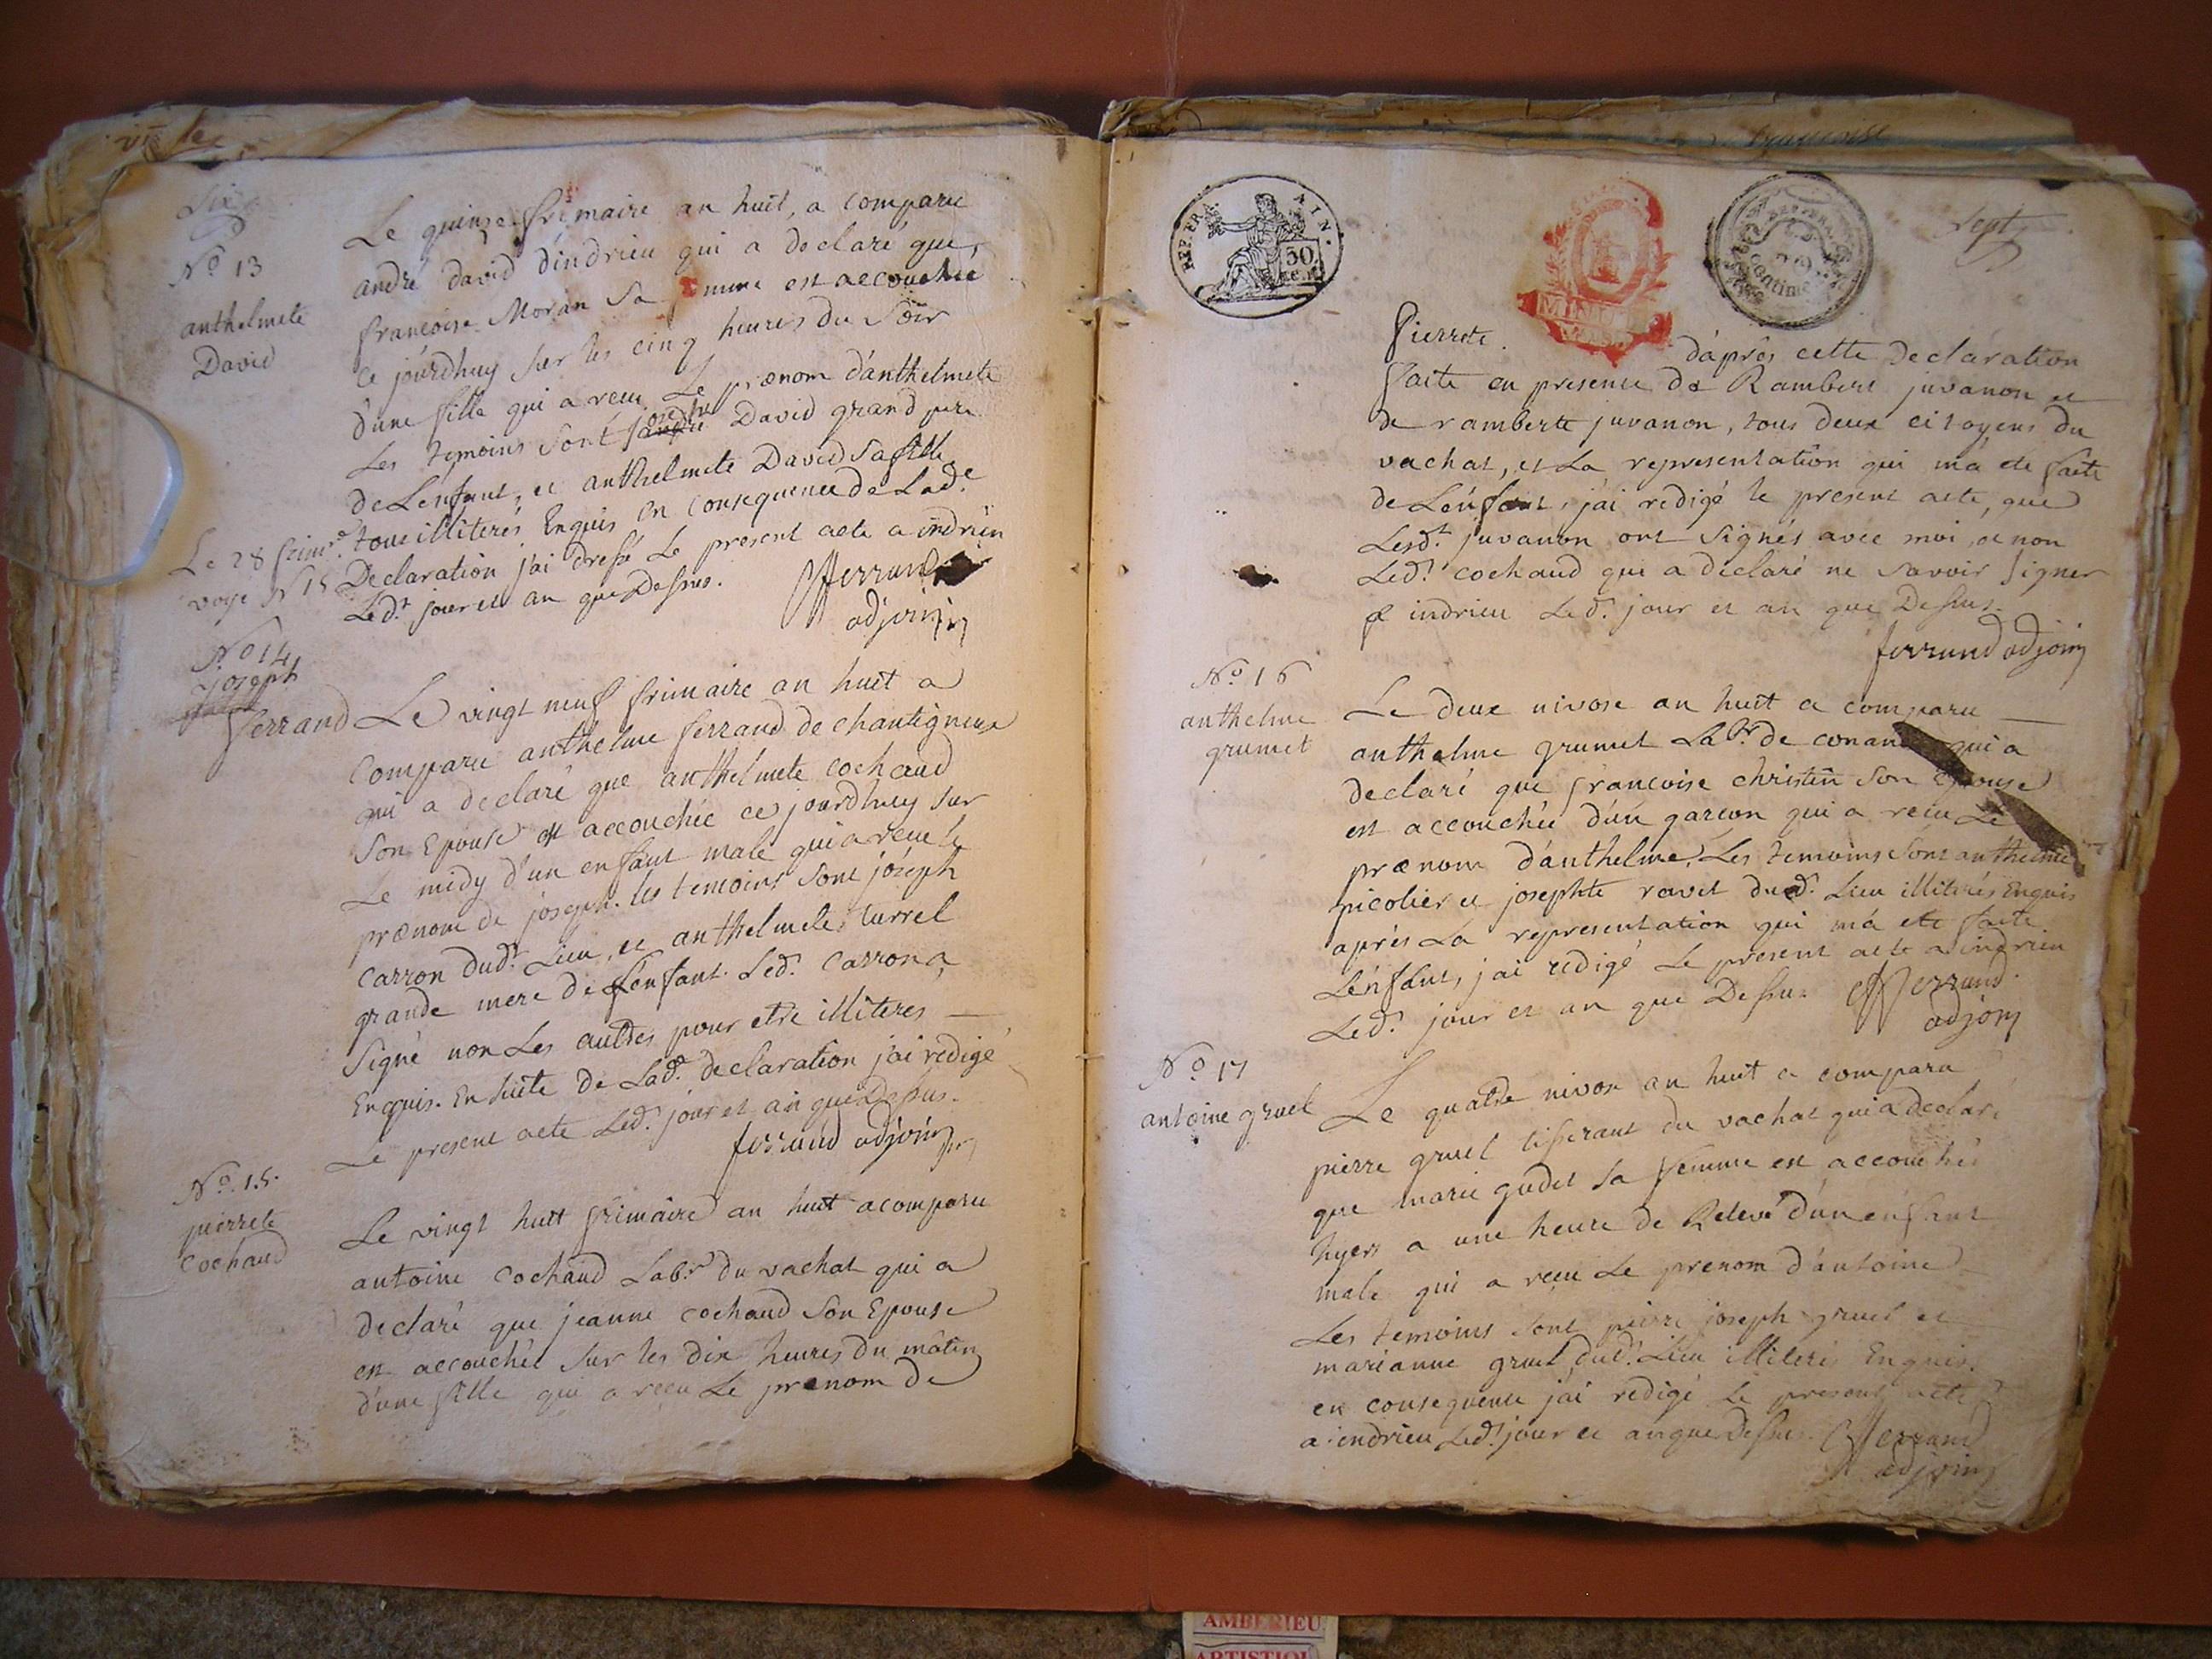 six
N.º 13
anthelmete
David
Le quinze frimaire an huit, a comparu
andré david d'indrieu qui a declaré que
francoise Moran sa femme est accouchée
ce jourdhuy sur les cinq heures du soir
d'une fille qui a recu le prænom d'anthelmete
Les temoins sont joseph David grand pere
de Lenfant, et anthelmete David sa fille
tous illiterés Enquis en consequence de Lad.e
Declaration j'ai dressé Le present acte a indrieu
Led.t jour et an que Dessus.
ferrand
adjoint
Le 28 frim.re
voye N 15
N.º 14
joseph
ferrand
Le vingt neuf frimaire an huit a
comparu anthelme ferrand de chantigneux
qui a declaré que anthelmete cochaud
son Epouse est accouchée ce jourdhuy sur
Le midy d'un enfant male qui a recu le
prænom de joseph. les temoins sont joseph
Carron dud.t Lieu, et anthelmete turrel
grande mere de Lenfant. Led.t Carron a
signé non Les autres pour etre illiterés
Enquis. En suite de Lad.e declaration j'ai redigé
Le present acte Led.t jour et an que Dessus.
ferrand adjoint
N.º 15.
pierrete
Cochaud
Le vingt huit frimaire an huit a comparu
antoine Cochaud Lab.r du vachat qui a
declaré que jeanne cochaud son Epouse
est accouchée sur les dix heures du matin
d'une fille qui a recu Le prenom de
REP. FRA. AIN.
50
sept
Pierrete. d'après cette Declaration
faite en presence de Rambert juvanon et
de ramberte juvanon, tous deux citoyens du
vachat, et La representation qui m'a ete faite
de Lénfant, j'ai redigé le present acte, que
Lesd.t juvanon ont signés avec moi, et non
Led.t cochaud qui a declaré ne savoir signer
a indrieu Led.t jour et an que Dessus.
ferrand adjoint
N.º 16
anthelme
grumet
Le deux nivose an huit a comparu
anthelme grumet Lab.r de conand qui a
declaré que francoise christin son Epouse
est accouchée d'un garcon qui a recu Le
prænom d'anthelme. Les temoins sont anthelme
picolier et josephte ravet dud.t Lieu illiterés Enquis
après La representation qui m'a ete faite
Lénfant, j'ai redigé Le present acte a indrieu
Led.t jour et an que Dessus ferrand
adjoint
N.º 17
antoine gruel
Le quatre nivose an huit a comparu
pierre gruel tisserant du vachat qui a declaré
que marie godet sa femme est accouchée
hyers a une heure de Relevé d'un enfant
male qui a recu Le prenom d'antoine
Les temoins sont pierre joseph gruel et
marianne gruel dud.t Lieu illiterés Enquis.
en consequence j'ai redigé Le present acte
a indrieu Led.t jour et an que Dessus. ferrand
adjoint
AMBERIEU